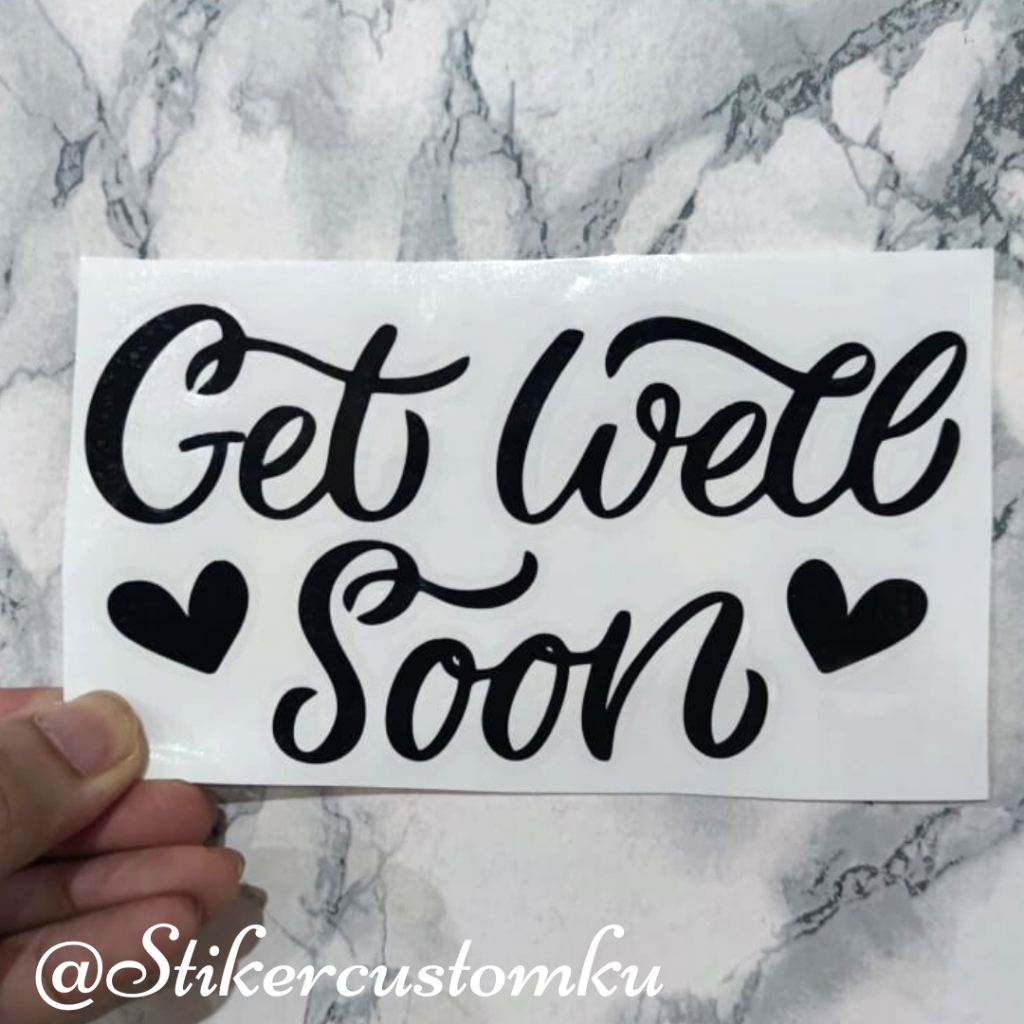 Get Well
Soon
@Stikercustomku